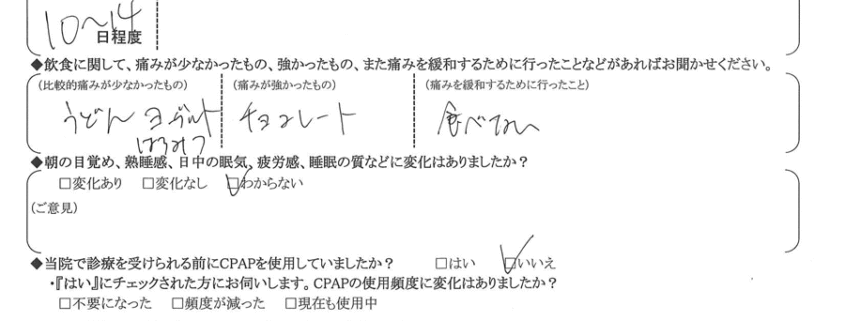 10～14
日程度
◆飲食に関して、痛みが少なかったもの、強かったもの、また痛みを緩和するために行ったことなどがあればお聞かせください。
(比較的痛みが少なかったもの) (痛みが強かったもの) (痛みを緩和するために行ったこと)
うどん ヨーグルト チョコレート 食べない
はちみつ
◆朝の目覚め、熟睡感、日中の眠気、疲労感、睡眠の質などに変化はありましたか？
□変化あり □変化なし ☑わからない
(ご意見)
◆当院で診療を受けられる前にCPAPを使用していましたか？ □はい ☑いいえ
・『はい』にチェックされた方にお伺いします。CPAPの使用頻度に変化はありましたか？
□不要になった □頻度が減った □現在も使用中